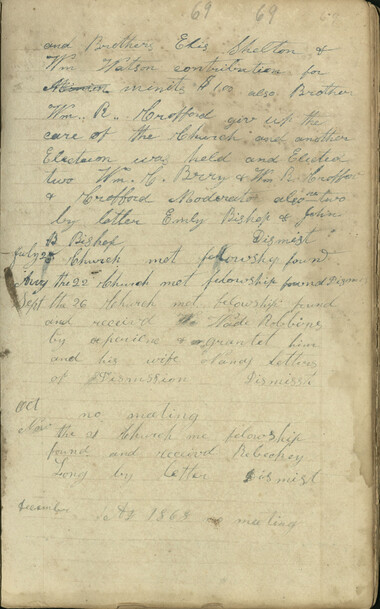 69 69
and Brother Elis Shelton &
Wm Watson contribution for
minuts $1.00 also Brother
Wm. R. Crofford give up the
care of the Church and another
Electsion was held and Elected
two Wm. C. Berry & Wm R. Croffor
& Crofford Moderator also two
by letter Emily Bishop & John
B Bishop Dismist
July 25 Church met felowship found
Aug the 22 Church met felowship found Dismis
Sept the 26 Church met felowship found
and received Wade Robbins
by experience & granted him
and his wife Nancy letters
of Dismission Dismist
Oct no meating
Nov the 21 Church me felowship
found and received Rebeckey
Long by letter Dismist
December 1868 no meeting